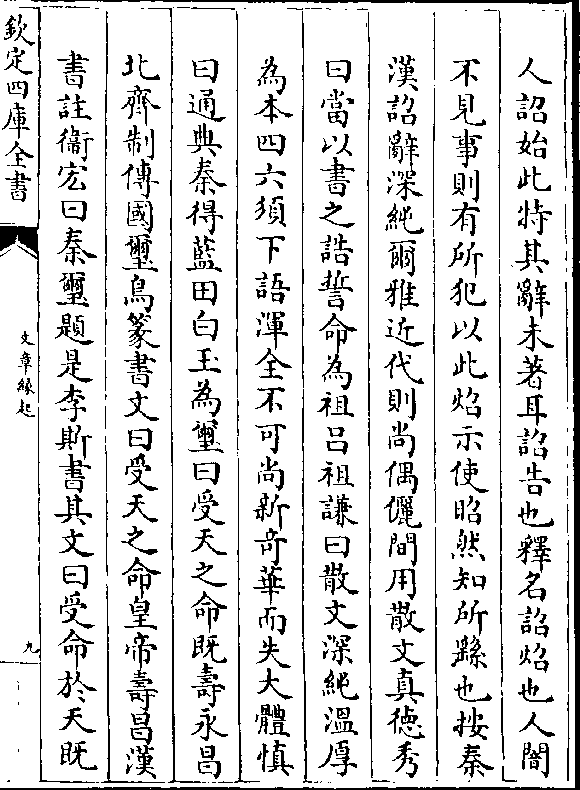 人詔始此特其辭未著耳詔告也釋名詔炤也人闇
不見事則有所犯以此炤示使昭然知所繇也按秦
漢詔辭深純爾雅近代則尚偶儷間用散文真徳秀
曰當以書之誥誓命為祖吕祖謙曰散文深純溫厚
為本四六須下語渾全不可尚新奇華而失大體慎
曰通典秦得藍田白玉為璽曰受天之命既壽永昌
北齊制傳國璽鳥篆書文曰受天之命皇帝壽昌漢
書註衞宏曰秦璽題是李斯書其文曰受命於天既
欽定四庫全書
文章縁起
九